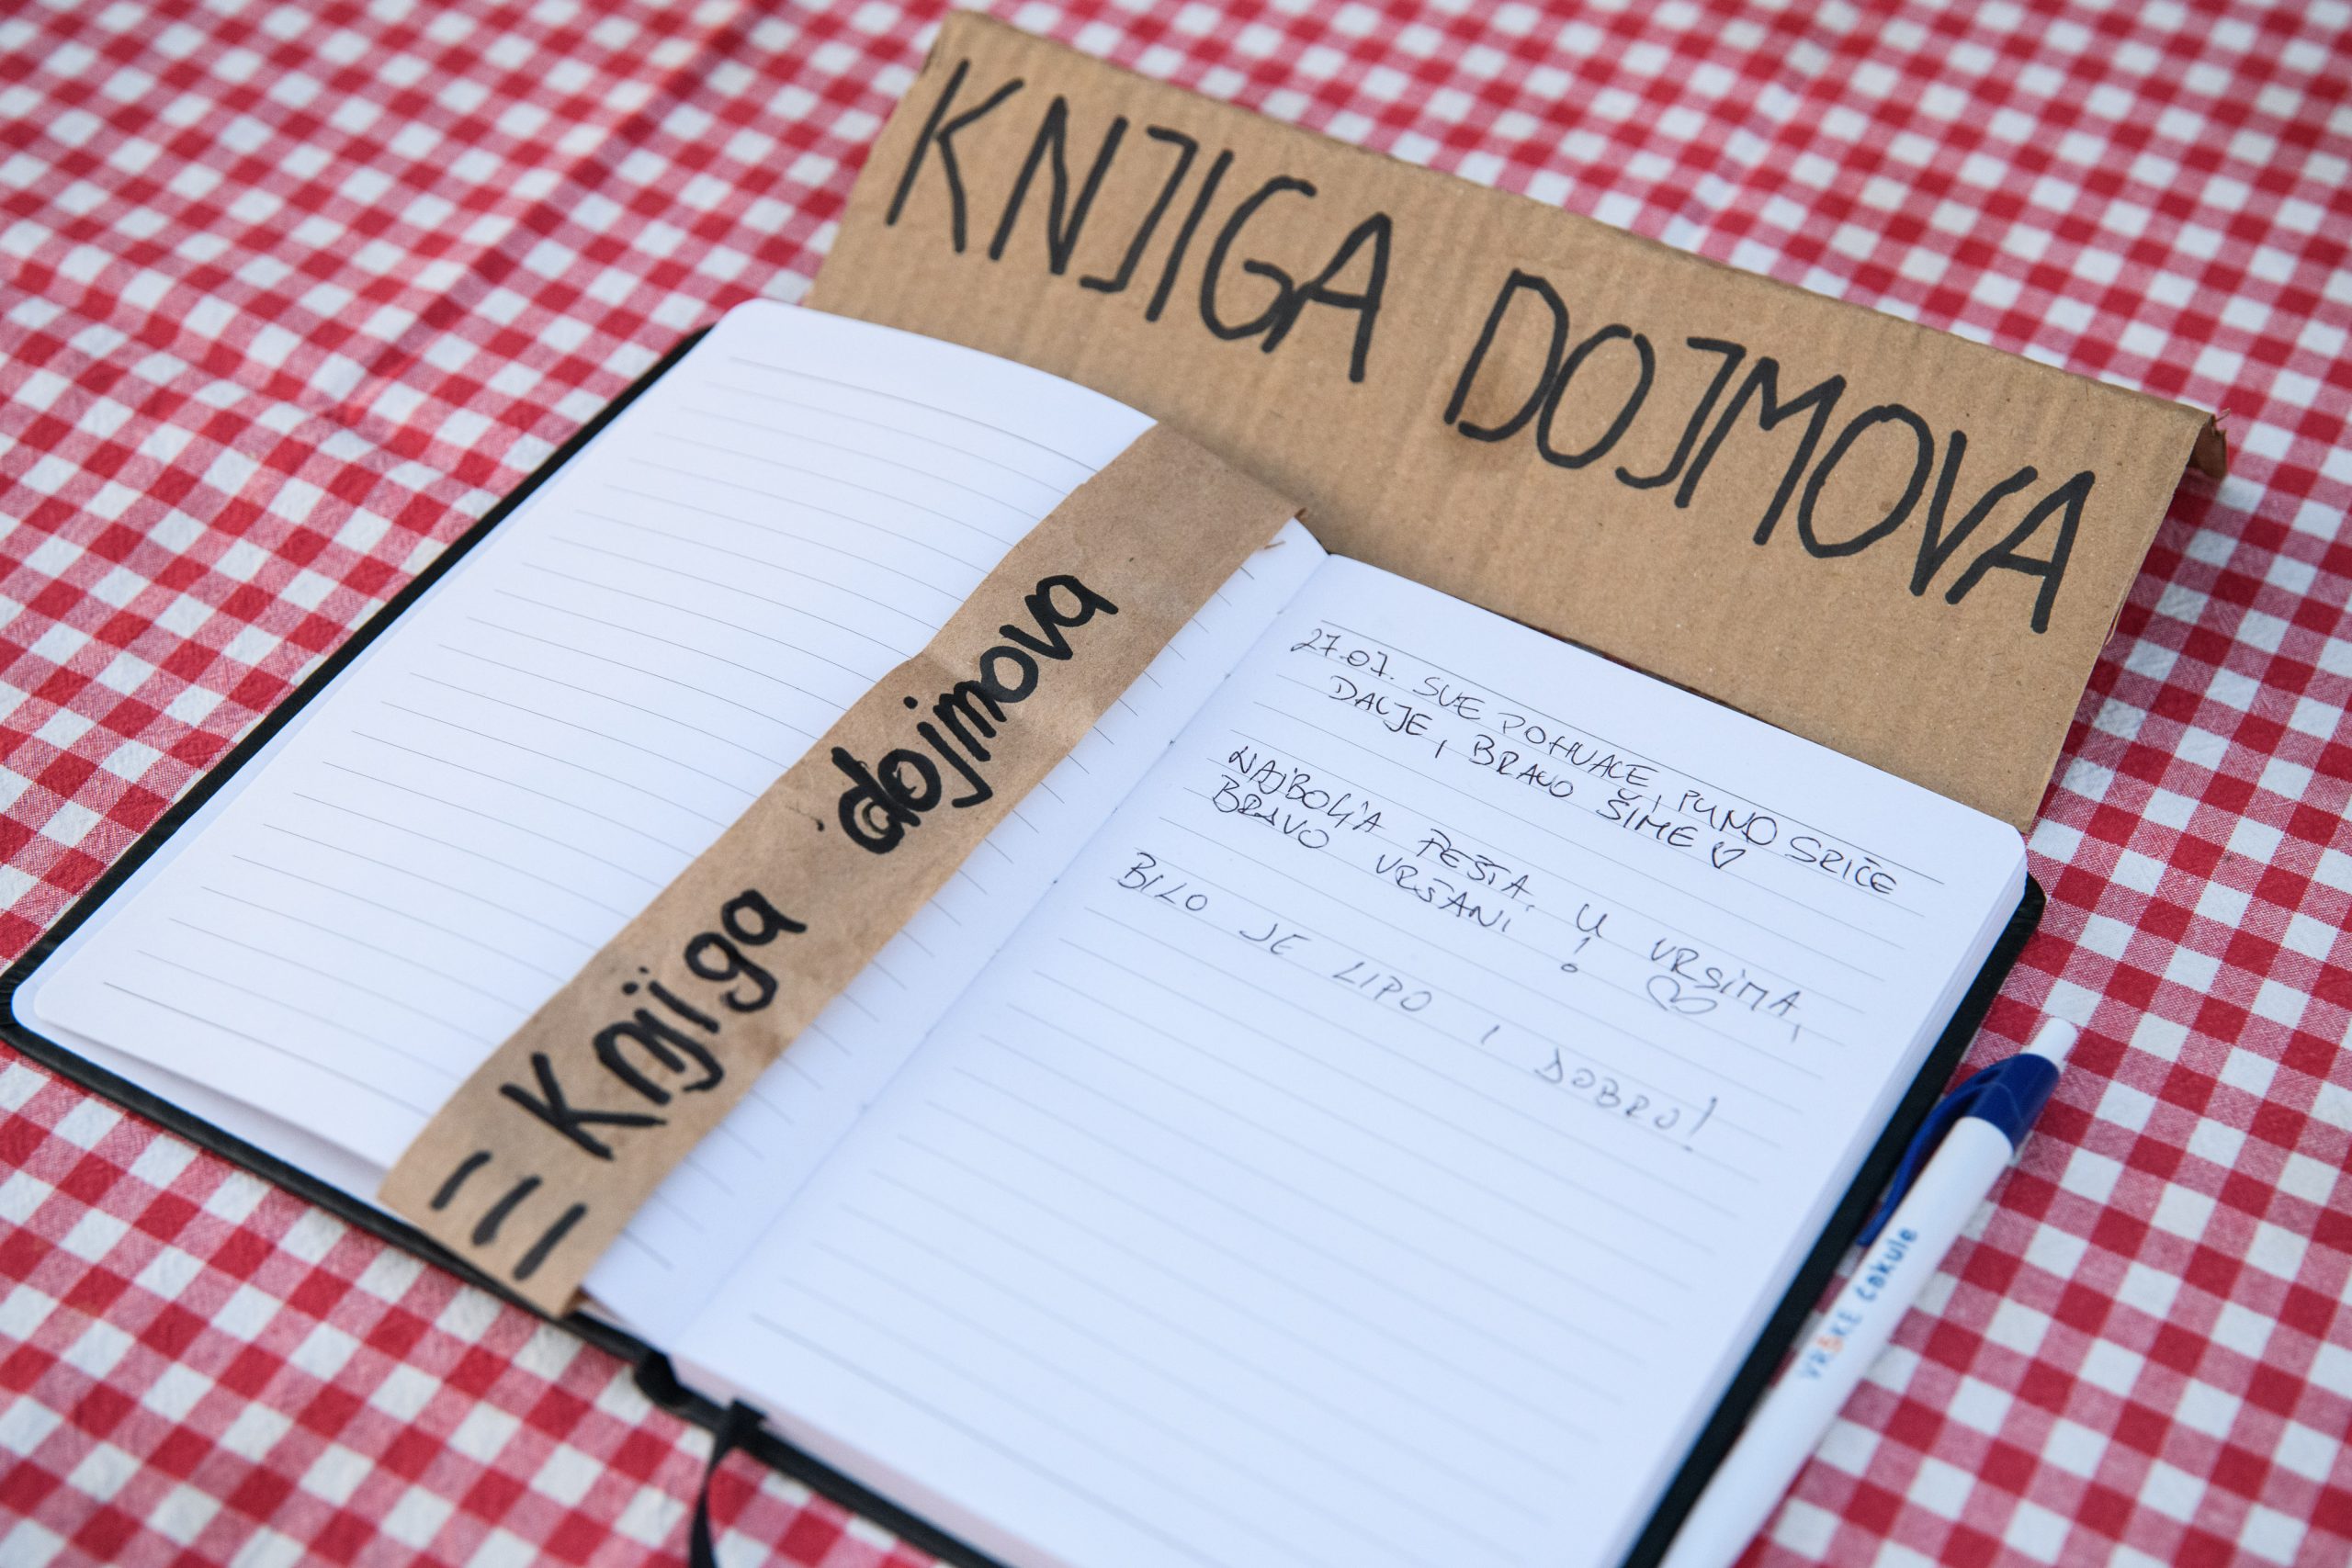 KNJIGA DOJMOVA
= Knjiga dojmova
27.07. SVE POHVALE, PUNO SRIĆE
DALJE, BRAVO ŠIME ♡
NAJBOLJA FEŠTA U VRSIMA,
BRAVO VRŠANI! ♡
BILO JE LIPO I DOBRO!
VRŠKE ćakule